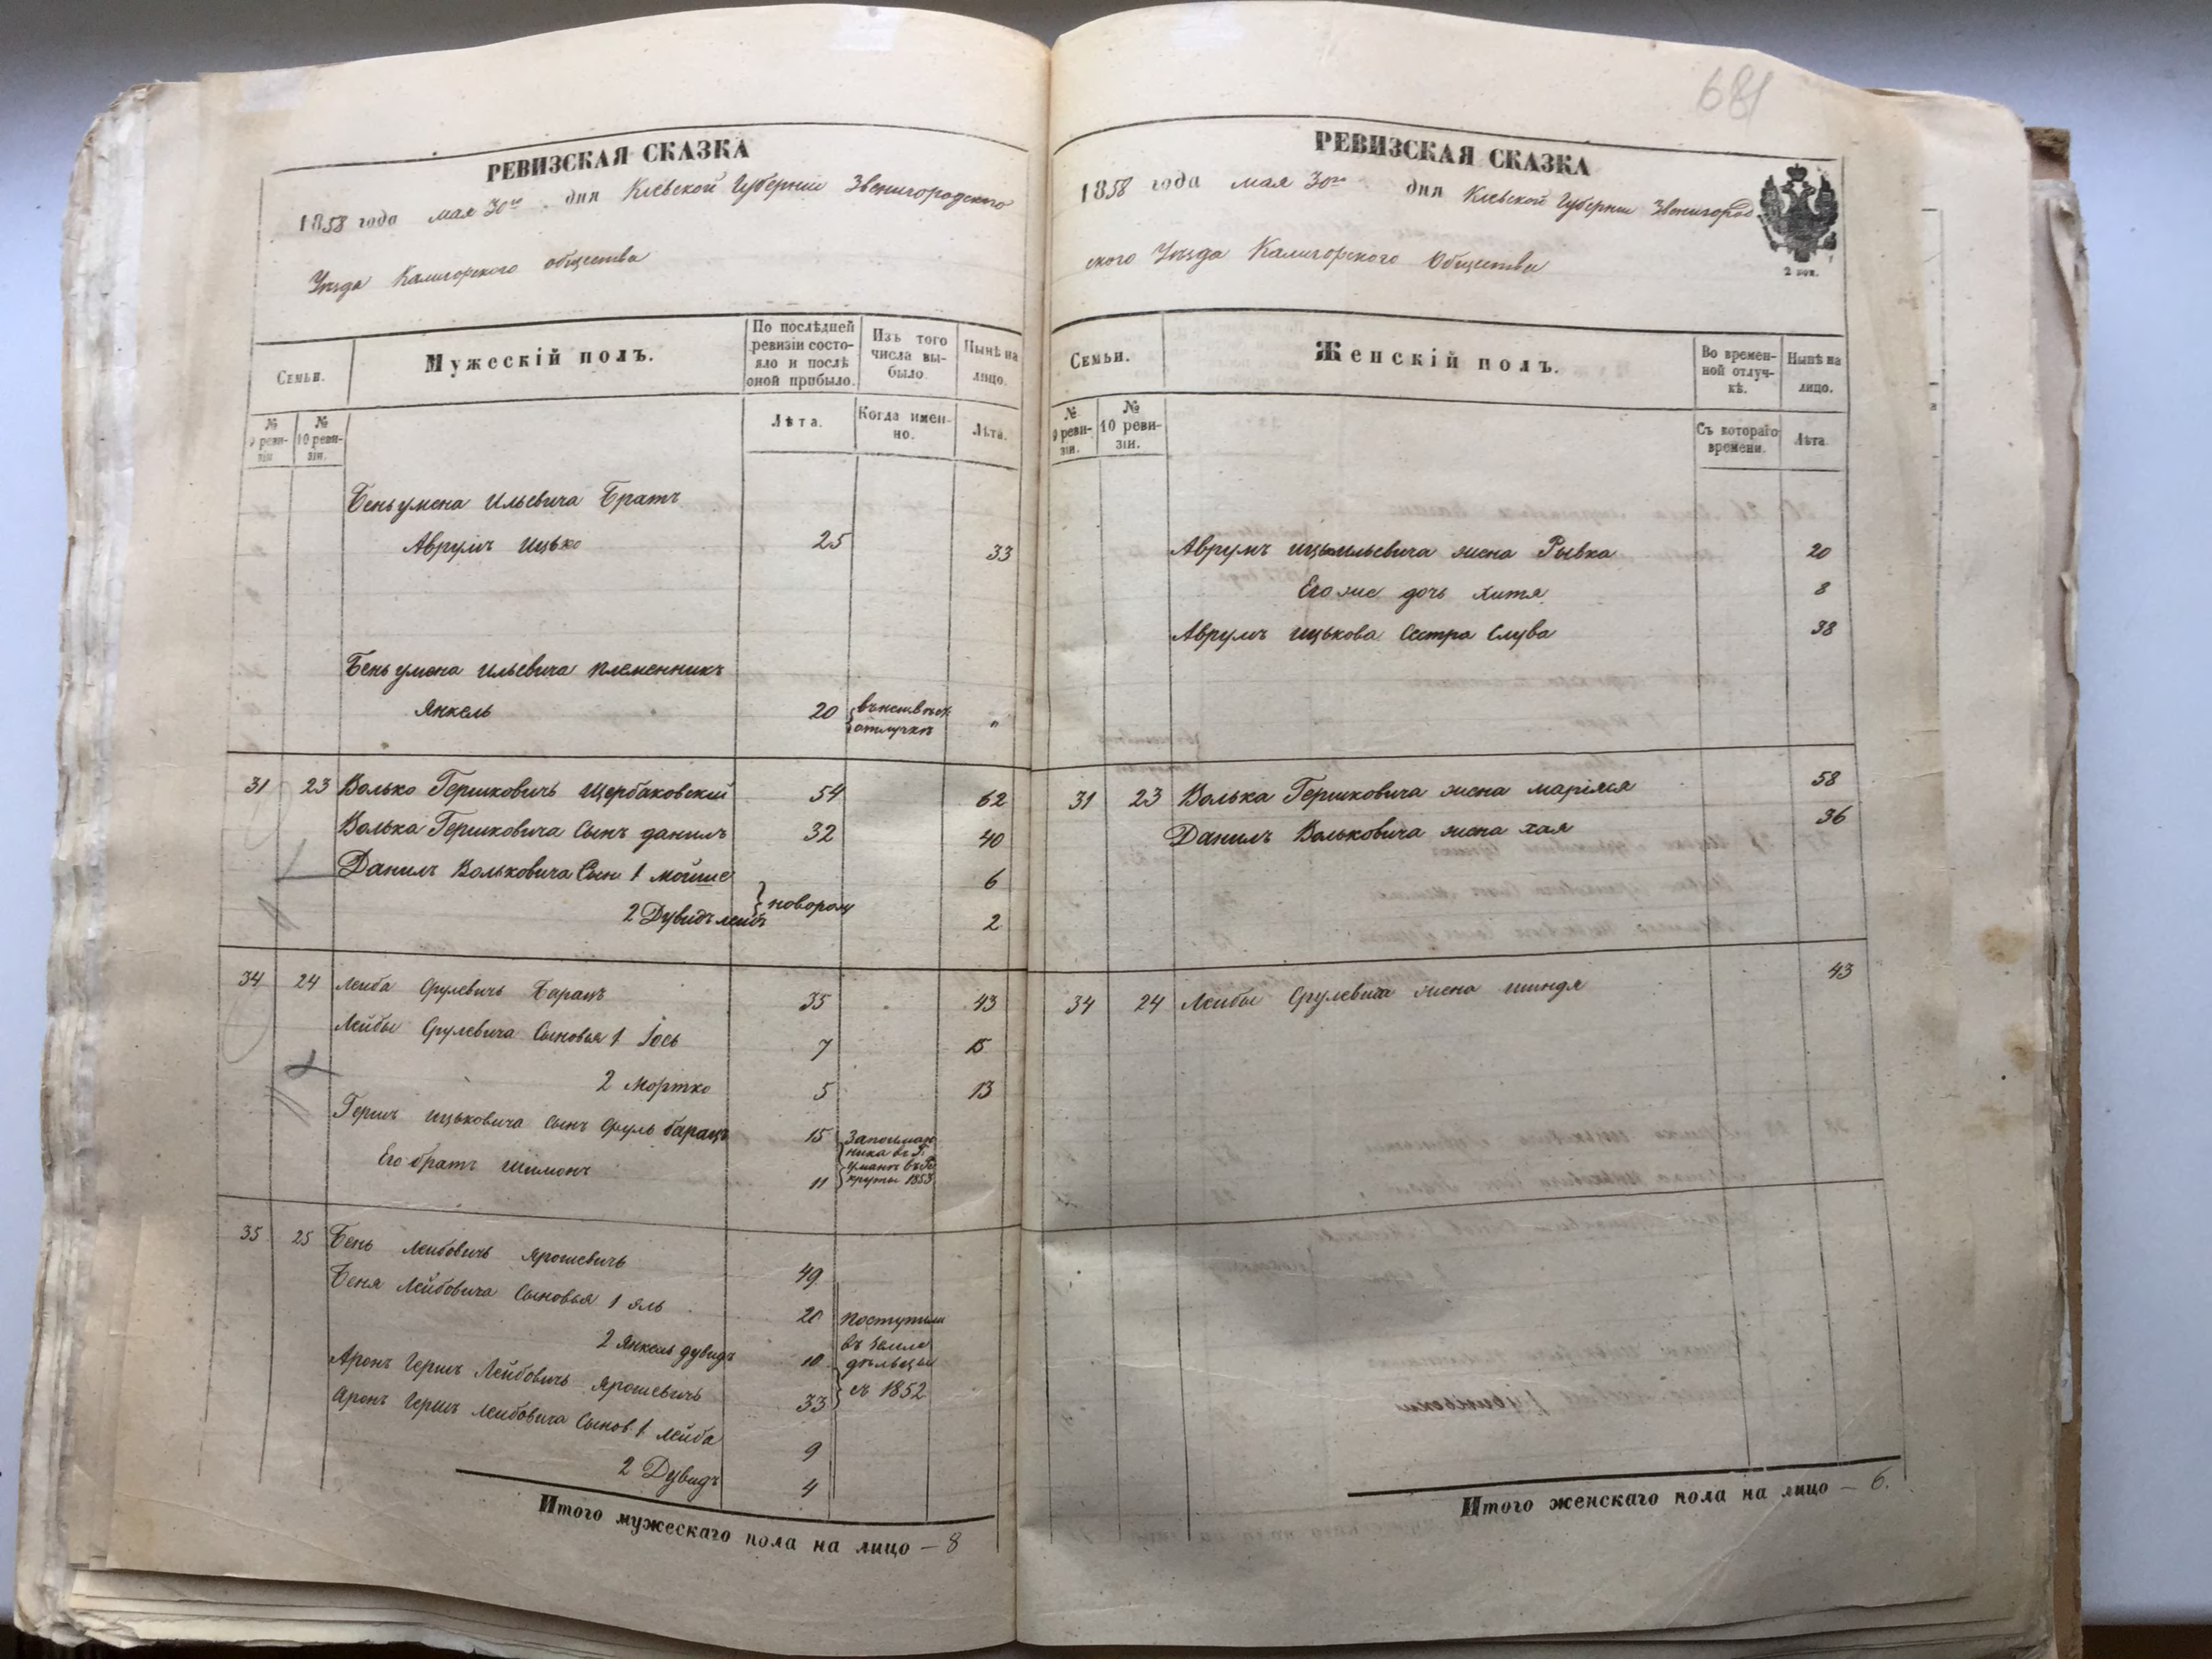 681
РЕВИЗСКАЯ СКАЗКА
1858 года мая 30го дня Кіевской Губерніи Звенигородского
Уѣзда Калигорского общества
Семьи.
Мужескій полъ.
По послѣдней ревизіи состояло и послѣ оной прибыло.
Изъ того числа выбыло
Нынѣ на лицо.
№ 9 ревизіи
№ 10 ревизіи.
Лѣта.
Когда именно.
Лѣта.
Беньумена Ильевича Братъ
Аврумъ Ицько 25 33
Беньумена Ильевича племенникъ
Янкель 20 отлучкѣ "
31 23 Волько Гершковичъ Щербаковскій 54 62
Волька Гершковича Сынъ данилъ 32 40
Данилъ Вольковича Сын 1 мойше 6
новорож
2 Дувидъ лейбъ 2
34 24 Лейба Срулевичъ Баранъ 35 43
Лейбы Срулевича Сыновья 1 Іось 7 15
2 Мортко 5 13
Гершъ ицьковича Сынъ Сруль баранъ 15
Его братъ Шимонъ 11
круты 1853
35 25 Бень Лейбовичъ Ярошевичъ 49
Беня Лейбовича Сыновья 1 яль 20
2 Янкель дувидъ 10
Аронъ Гершъ Лейбовичъ Ярошевичъ 33
поступили
въ земле
дѣльцы
съ 1852
Аронъ Гершъ Лейбовича Сынов 1 Лейба 9
2 Дувидъ 4
Итого мужескаго пола на лицо – 8
РЕВИЗСКАЯ СКАЗКА
1858 года мая 30го дня Кіевской Губерніи Звенигород
ского Уѣзда Калигорского Общества
2 коп.
Семьи.
Женскій полъ.
Во временной отлучкѣ.
Нынѣ на лицо.
№ 9 ревизіи.
№ 10 ревизіи.
Съ котораго времени.
Лѣта
Аврумъ ицьильевича жена Рывка 20
Его же дочь Хитя 8
Аврумъ ицькова Сестра Слува 38
31 23 Волька Гершковича жена маріяся 58
Данилъ Вольковича жена хая 36
34 24 Лейбы Срулевича жена шиндя 43
Итого женскаго пола на лицо – 6.